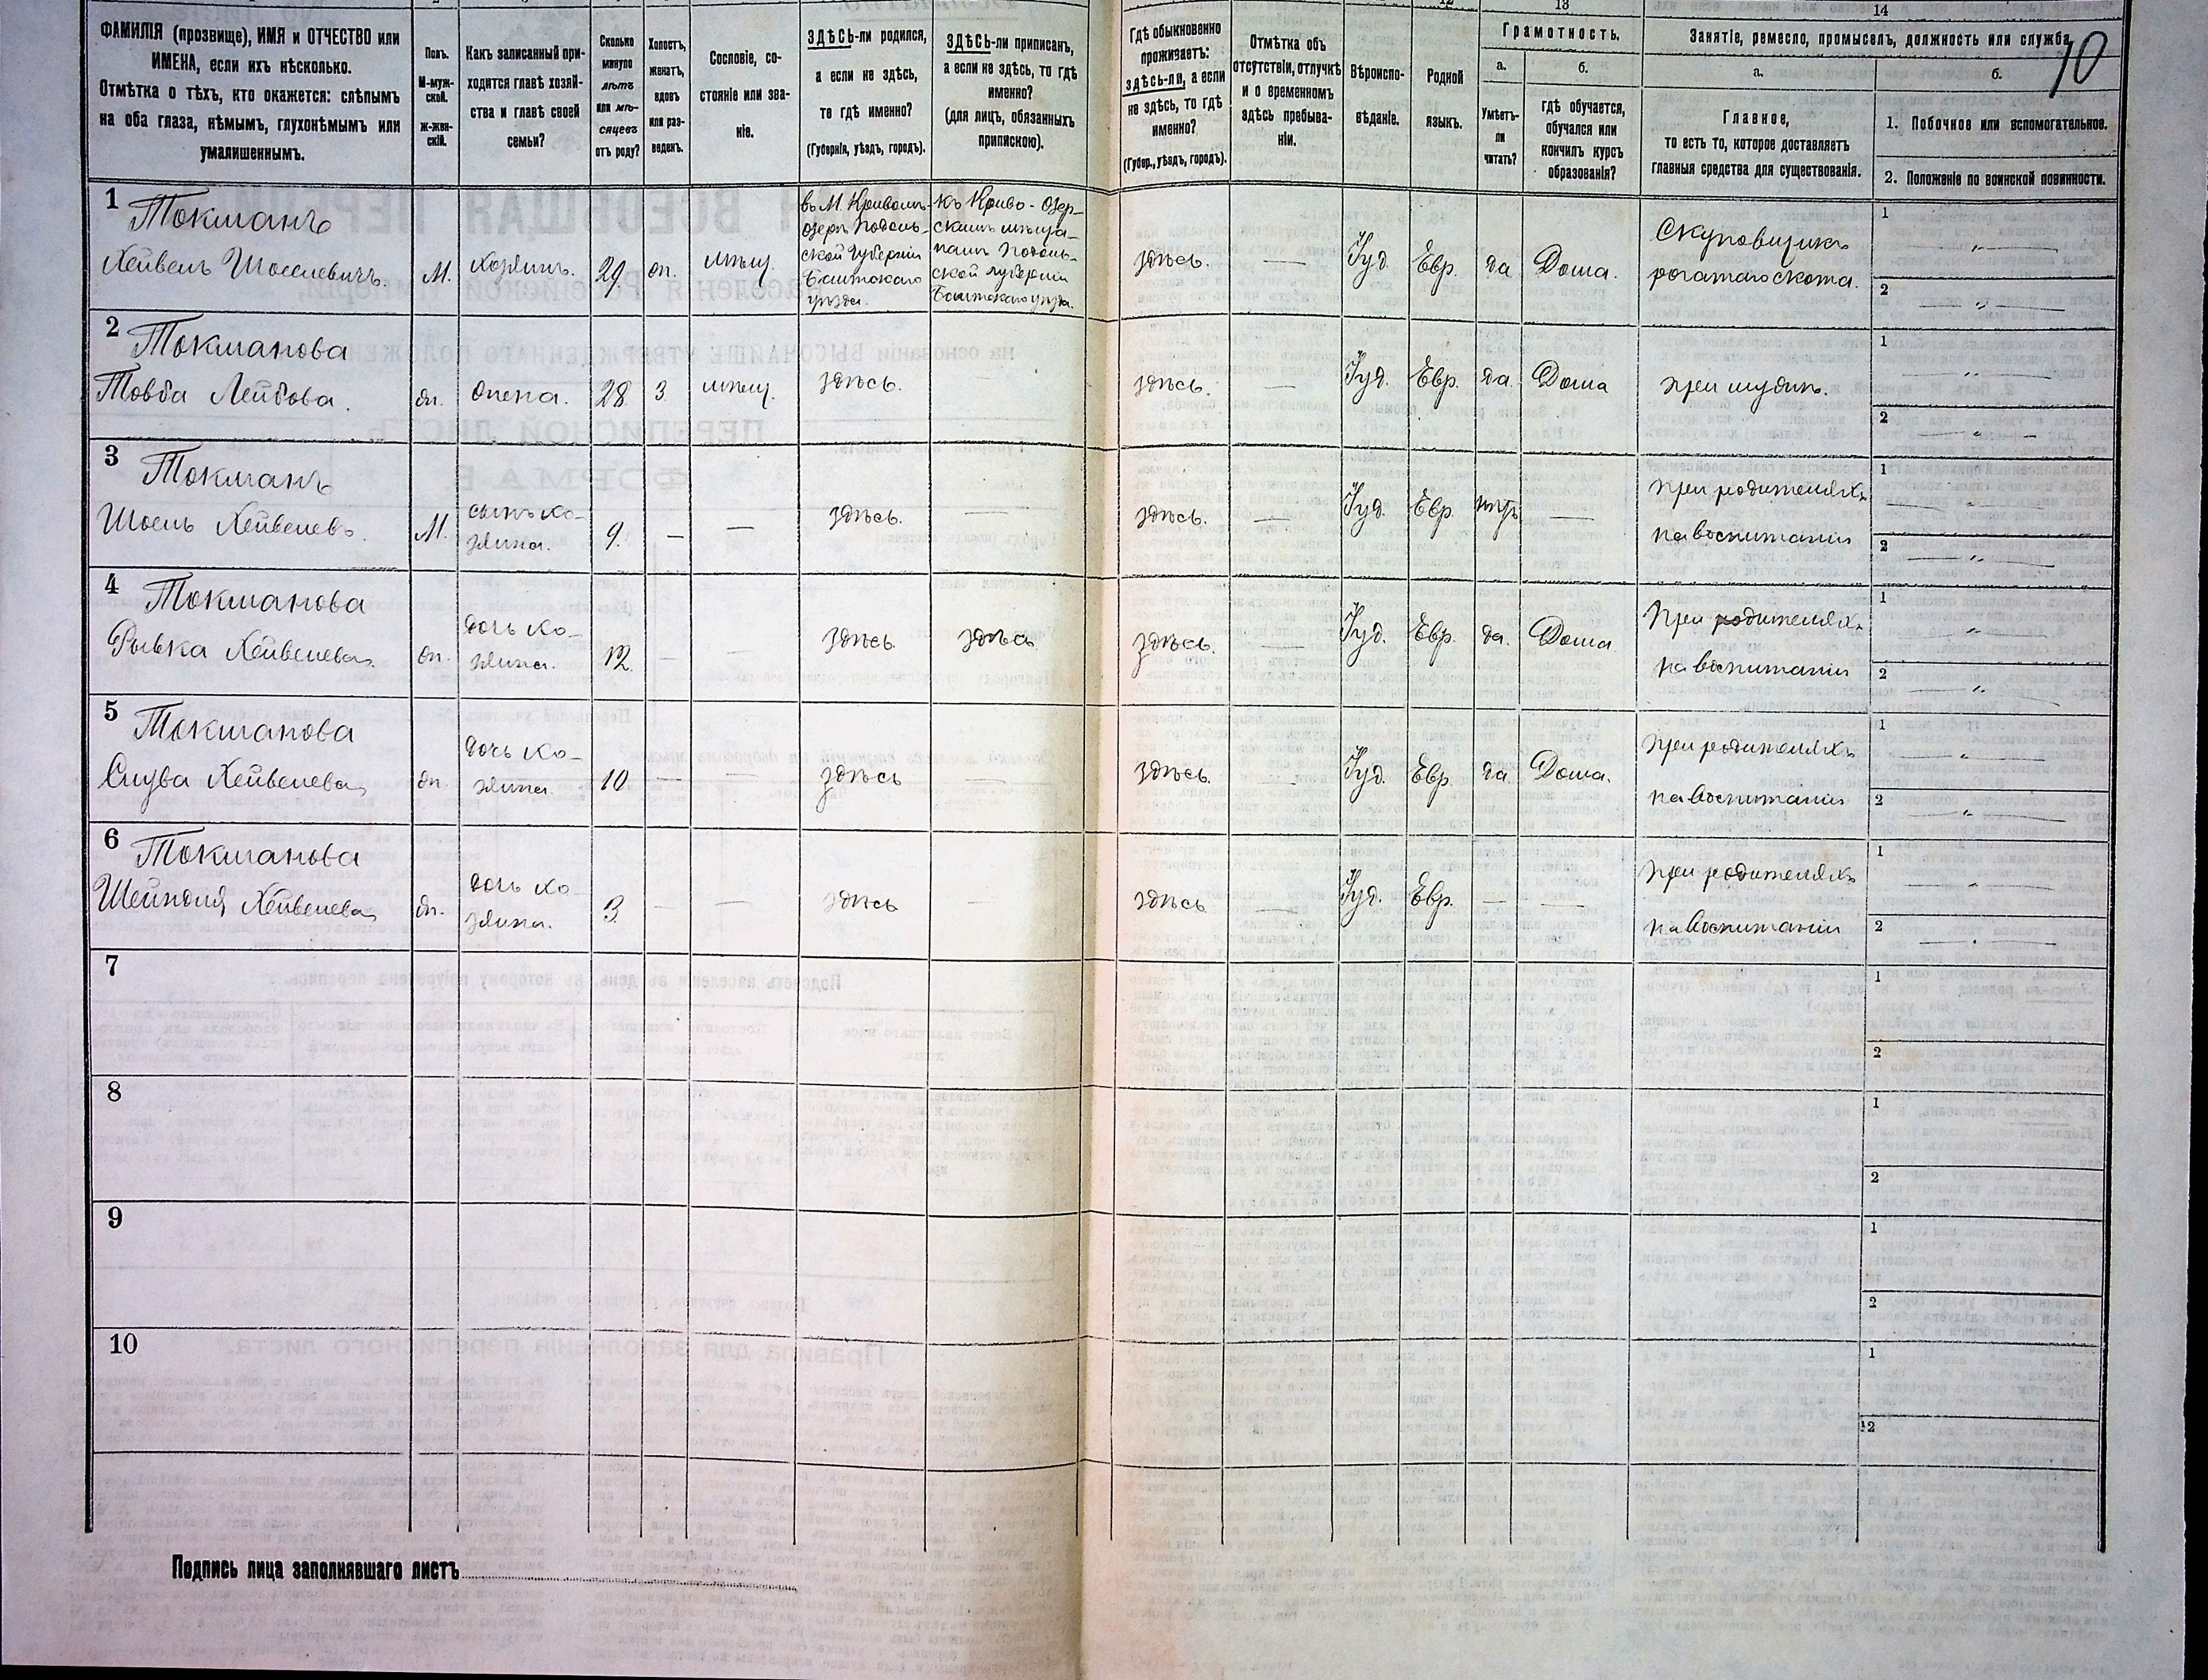 13
14
ФАМИЛІЯ (прозвище), ИМЯ и ОТЧЕСТВО или
ИМЕНА, если ихъ нѣсколько.
Отмѣтка о тѣхъ, кто окажется: слѣпымъ
на оба глаза, нѣмымъ, глухонѣмымъ или
умалишеннымъ.
Полъ.
М-муж-
ской.
ж-жен-
скій.
Какъ записанный при-
ходится главѣ хозяй-
ства и главѣ своей
семьи?
Сколько
минуло
лѣтъ
или мѣ-
сяцевъ
отъ роду?
Холостъ,
женатъ,
вдовъ
или раз-
веденъ.
Сословіе, со-
стояніе или зва-
ніе.
ЗДѢСЬ-ли родился,
а если не здѣсь,
то гдѣ именно?
(Губернія, уѣздъ, городъ).
ЗДѢСЬ-ли приписанъ,
а если не здѣсь, то гдѣ
именно?
(для лицъ, обязанныхъ
припискою).
Гдѣ обыкновенно
проживаетъ:
здѣсь-ли, а если
не здѣсь, то гдѣ
именно?
(Губер., уѣздъ, городъ).
Отмѣтка объ
отсутствіи, отлучкѣ
и о временномъ
здѣсь пребыва-
ніи.
Вѣроиспо-
вѣданіе.
Родной
языкъ.
Грамотность.
а.
Умѣетъ-
ли
читать?
б.
гдѣ обучается,
обучался или
кончилъ курсъ
образованія?
Занятіе, ремесло, промыселъ, должность или служба.
10
а.
Главное,
то есть то, которое доставляетъ
главныя средства для существованія.
б.
1. Побочное или вспомогательное.
2. Положеніе по воинской повинности.
1
Токманъ
Хейвель Шоелевичъ.
М.
Хозяинъ.
29
жп.
мѣщ.
въ М. Кривомъ-
озерѣ Подоль-
ской Губерніи
Балтскаго
уѣзда.
Къ Криво-Озер-
скимъ мѣща-
намъ Подоль-
ской губерніи
Балтскаго уѣзда.
здѣсь.
—
Іуд.
Евр.
да
Дома.
Скуповщикъ
рогатаго скота.
1 — „ —
2 — „ —
2
Токманова
Товба Лейбова.
жп.
жена.
28
З
мѣщ.
здѣсь.
—
здѣсь.
—
Іуд.
Евр.
да.
Дома
при мужѣ.
1 — „ —
2 — „ —
3
Токманъ
Шоель Хейвелевъ.
М.
сынъ хо-
зяина.
9.
—
—
здѣсь.
—
здѣсь.
—
Іуд.
Евр.
нѣтъ
—
при родителяхъ
на воспитаніи
1 — „ —
2 — „ —
4
Токманова
Рывка Хейвелева.
жп.
дочь хо-
зяина.
12.
—
—
здѣсь
здѣсь
здѣсь.
—
Іуд.
Евр.
да.
Дома
При родителяхъ
на воспитаніи
1 — „ —
2 — „ —
5
Токманова
Слува Хейвелева
жп.
дочь хо-
зяина.
10
—
—
здѣсь
—
здѣсь.
—
Іуд.
Евр.
да
Дома.
при родителяхъ
на воспитаніи
1 — „ —
2 — „ —
6
Токманова
Шейндля Хейвелева
жп.
дочь хо-
зяина.
3.
—
—
здѣсь
—
здѣсь
—
Іуд.
Евр.
—
—
при родителяхъ
на воспитаніи
1 — „ —
2 — „ —
7
1
2
8
1
2
9
1
2
10
1
2
Подпись лица заполнявшаго листъ